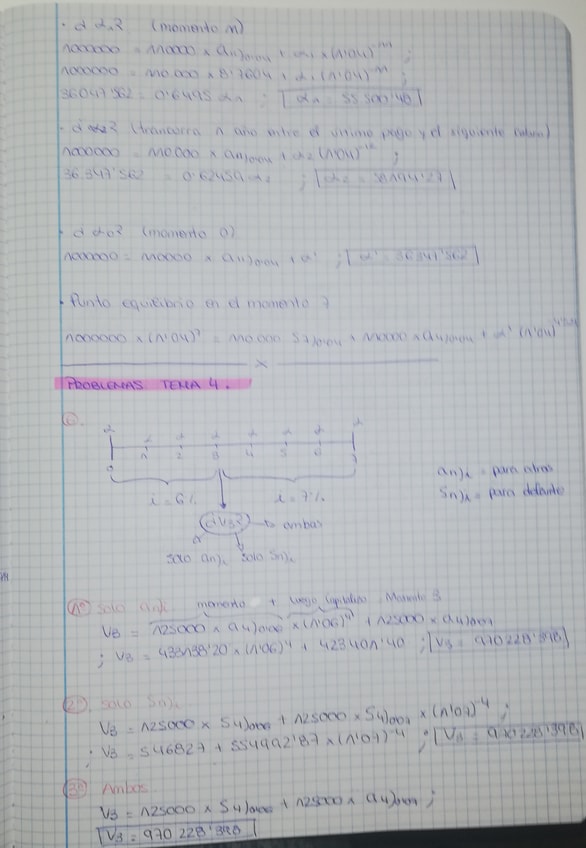 · ¿ αn? (momento n)
1000000 = 110000 × a11)0'04 + α1 (1'04)^-11 ;
1000000 = 110.000 × 8'7604 + α1 (1'04)^-11 ;
36047'562 = 0'6495 αn ; αn = 55500'48
1000000 = 110.000 × a11)0'04 + α2 (1'04)^-12 ;
36.347'562 = 0'62459 α2 ; α2 = 58194'27
· ¿ α0? (momento 0)
1000000 = 110000 × a11)0'04 + α' ; α' = 36341'562
· Punto equilibrio en el momento 7
1000000 × (1'04)^7 = 110.000 S7)0'04 + 110000 × a4)0'04 + α' (1'04)
×
PROBLEMAS TEMA 4.
6.
α α α α α α α α
0 1 2 3 4 5 6 7
i = 6% i = 7%
an)i = para atras
Sn)i = para delante
¿V3? → ambas
solo an)i solo Sn)i
1º solo an)i momento + luego capitalizo, Momento 3
V3 = 125000 × a4)0'06 × (1'06)^4 + 125000 × a4)0'07
; V3 = 433138'20 × (1'06)^4 + 423401'40 ; V3 = 970228'398
2º solo Sn)i
V3 = 125000 × S4)0'06 + 125000 × S4)0'07 × (1'07)^-4 ;
; V3 = 546827 + 554992'87 × (1'07)^-4 ; V3 = 970228'398
3º Ambos
V3 = 125000 × S4)0'06 + 125000 × a4)0'07 ;
V3 = 970228'398